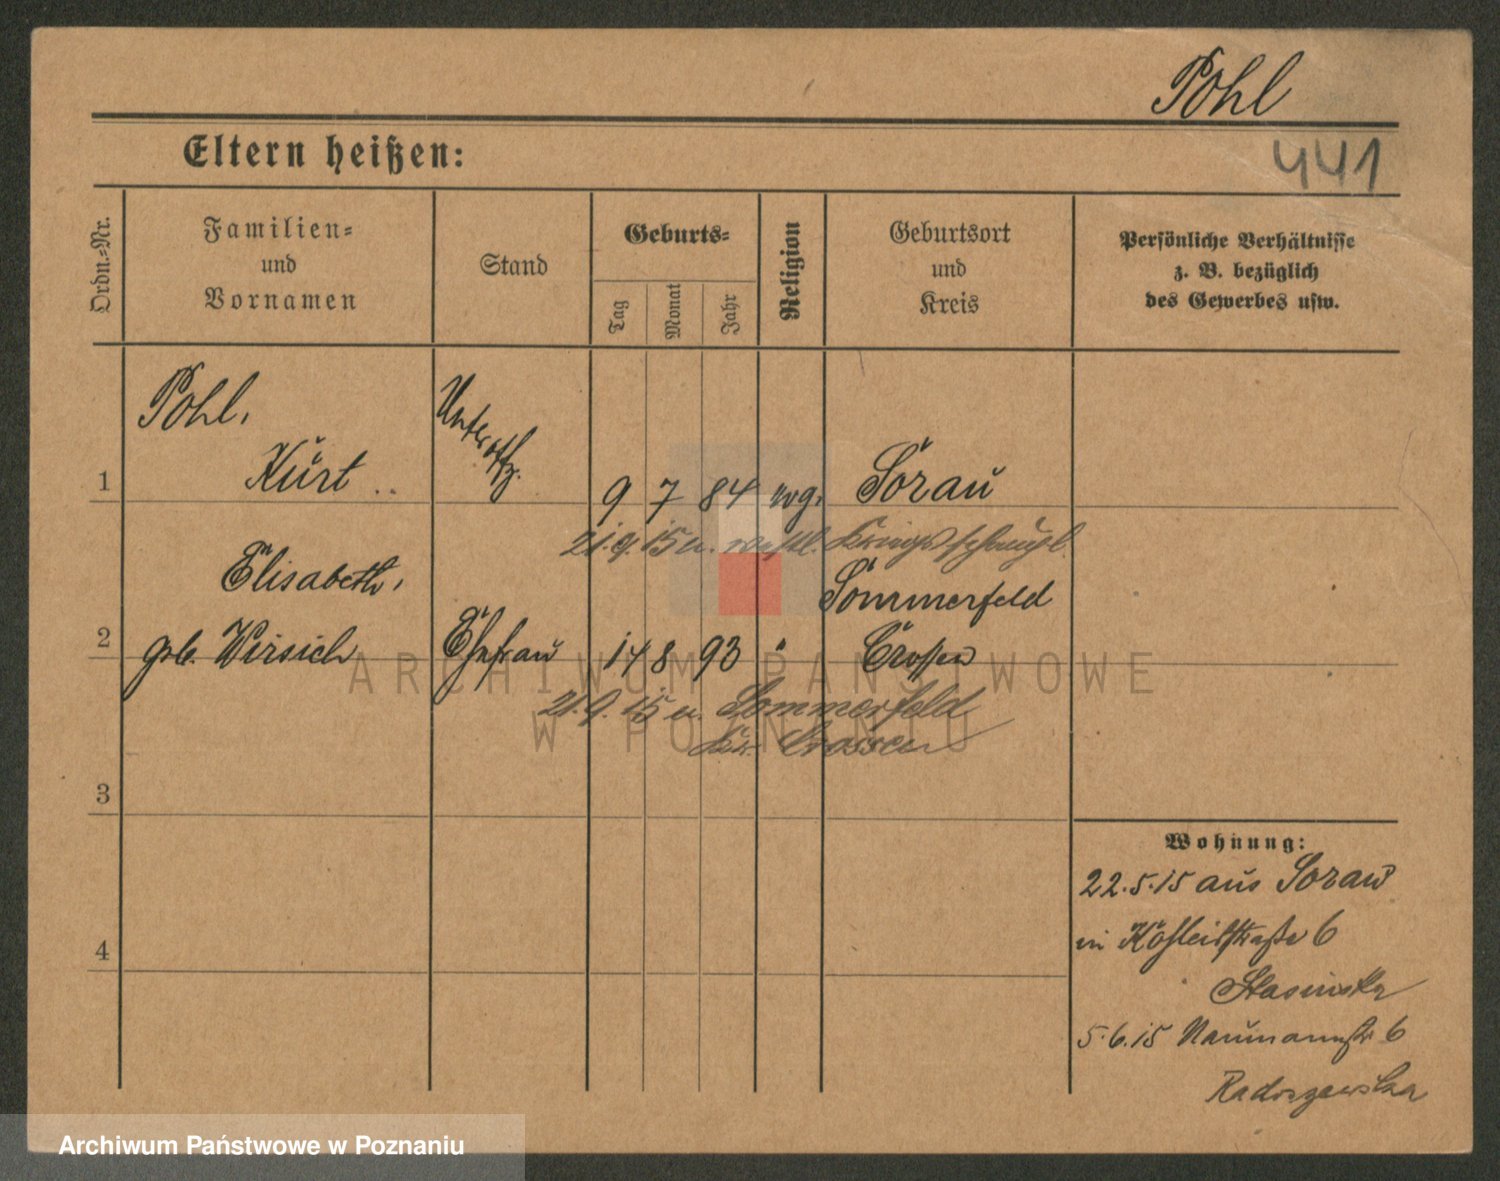 Pohl
Eltern heißen:
441
Ordn.-Nr.
Familien-
und
Vornamen
Stand
Geburts-
Tag
Monat
Jahr
Religion
Geburtsort
und
Kreis
Persönliche Verhältnisse
z. B. bezüglich
des Gewerbes usw.
1
Pohl,
Kurt
Unteroffz.
9 7 84 evg. Sorau
21.9.15 n. westl. Kriegsschaupl.
2
Elisabeth,
geb. Wirsich
Ehefrau
14 8 93 "
Sommerfeld
Crossen
21.9.15 n. Sommerfeld
Kr. Crossen
3
4
Wohnung:
22.5.15 aus Sorau
in 6
Stasinska
5.6.15 Naumannstr. 6
Radoszewska
ARCHIWUM PAŃSTWOWE
W POZNANIU
Archiwum Państwowe w Poznaniu